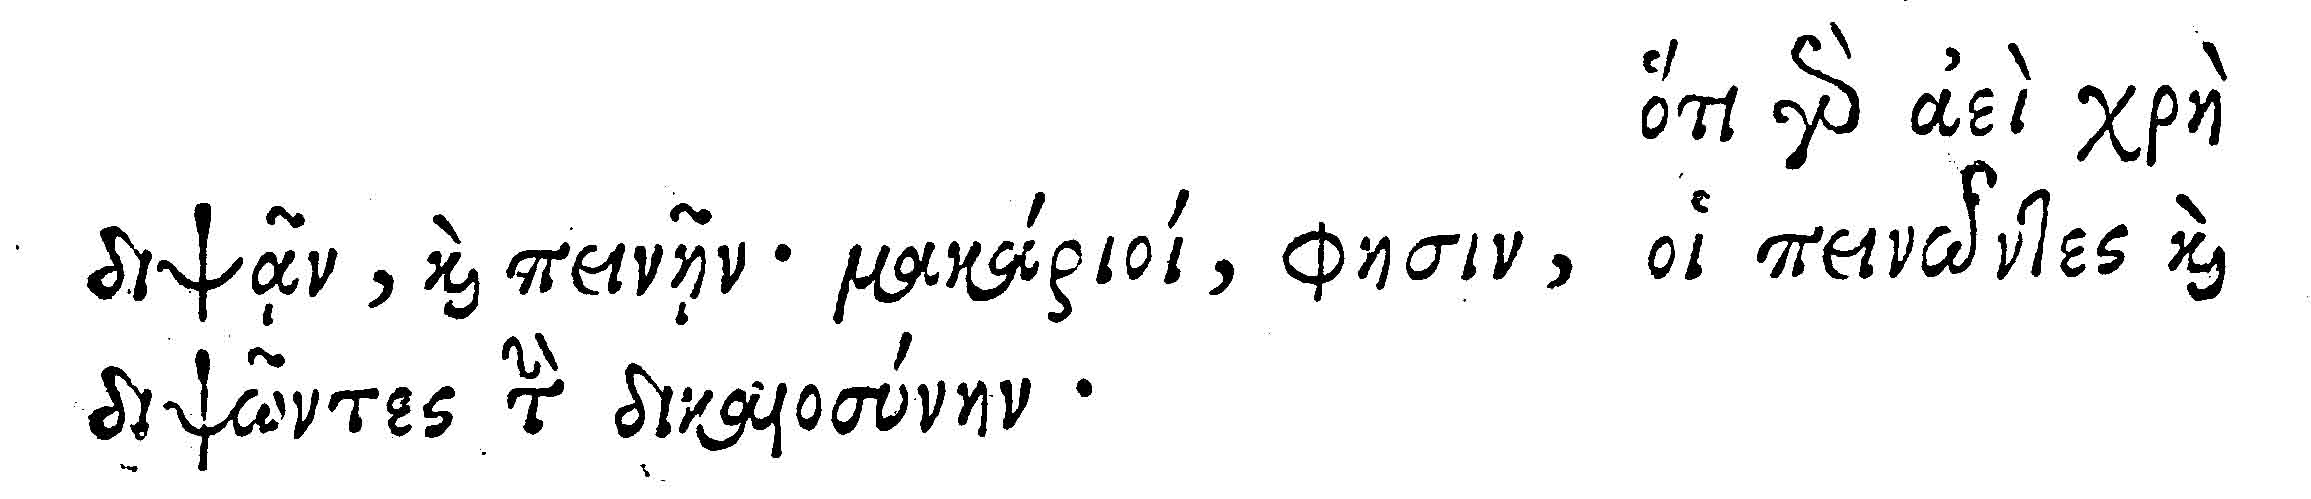 ὅτι γὰρ ἀεὶ χρὴ
διψᾷν, καὶ πεινῇν· μακάριοί, φησιν, οἱ πεινῶντες καὶ
διψῶντες τὴν δικαιοσύνην·